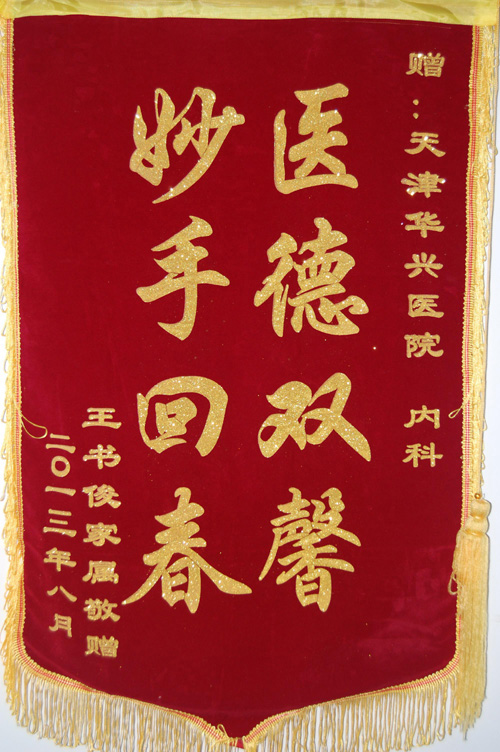 赠：天津华兴医院 内科
医德双馨
妙手回春
王书俊家属敬赠
二〇一三年八月